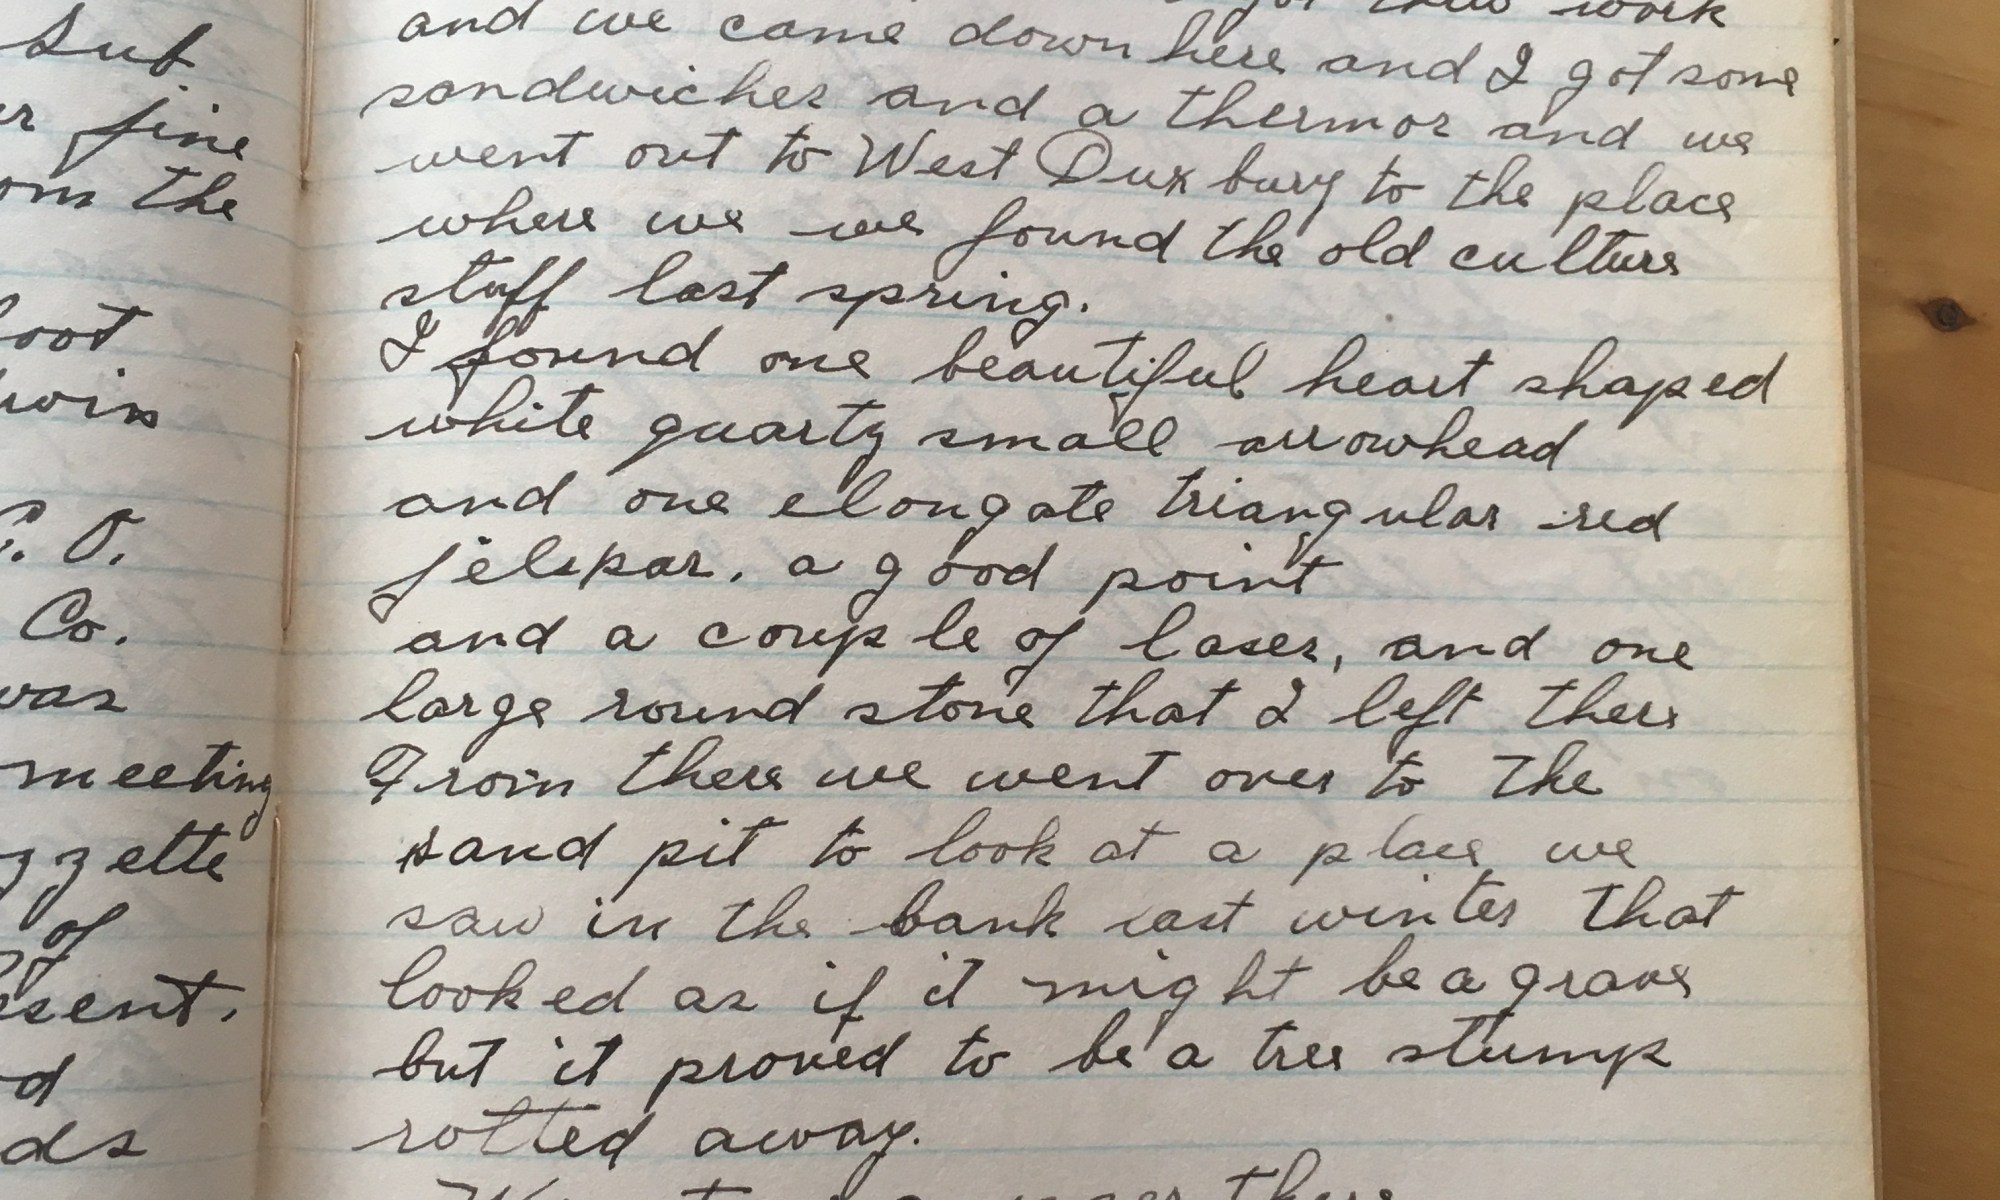 Sub
fine
the
Co.
meeting
of
work
and we came down here and I got some
sandwiches and a thermos and we
went out to West Duxbury to the place
where we we found the old culture
stuff last spring.
I found one beautiful heart shaped
white quartz small arrowhead
and one elongate triangular red
felspar. a good point
and a couple of bases, and one
large round stone that I left there
From there we went over to the
sand pit to look at a place we
saw in the bank last winter that
looked as if it might be a grave
but it proved to be a tree stump
rotted away.